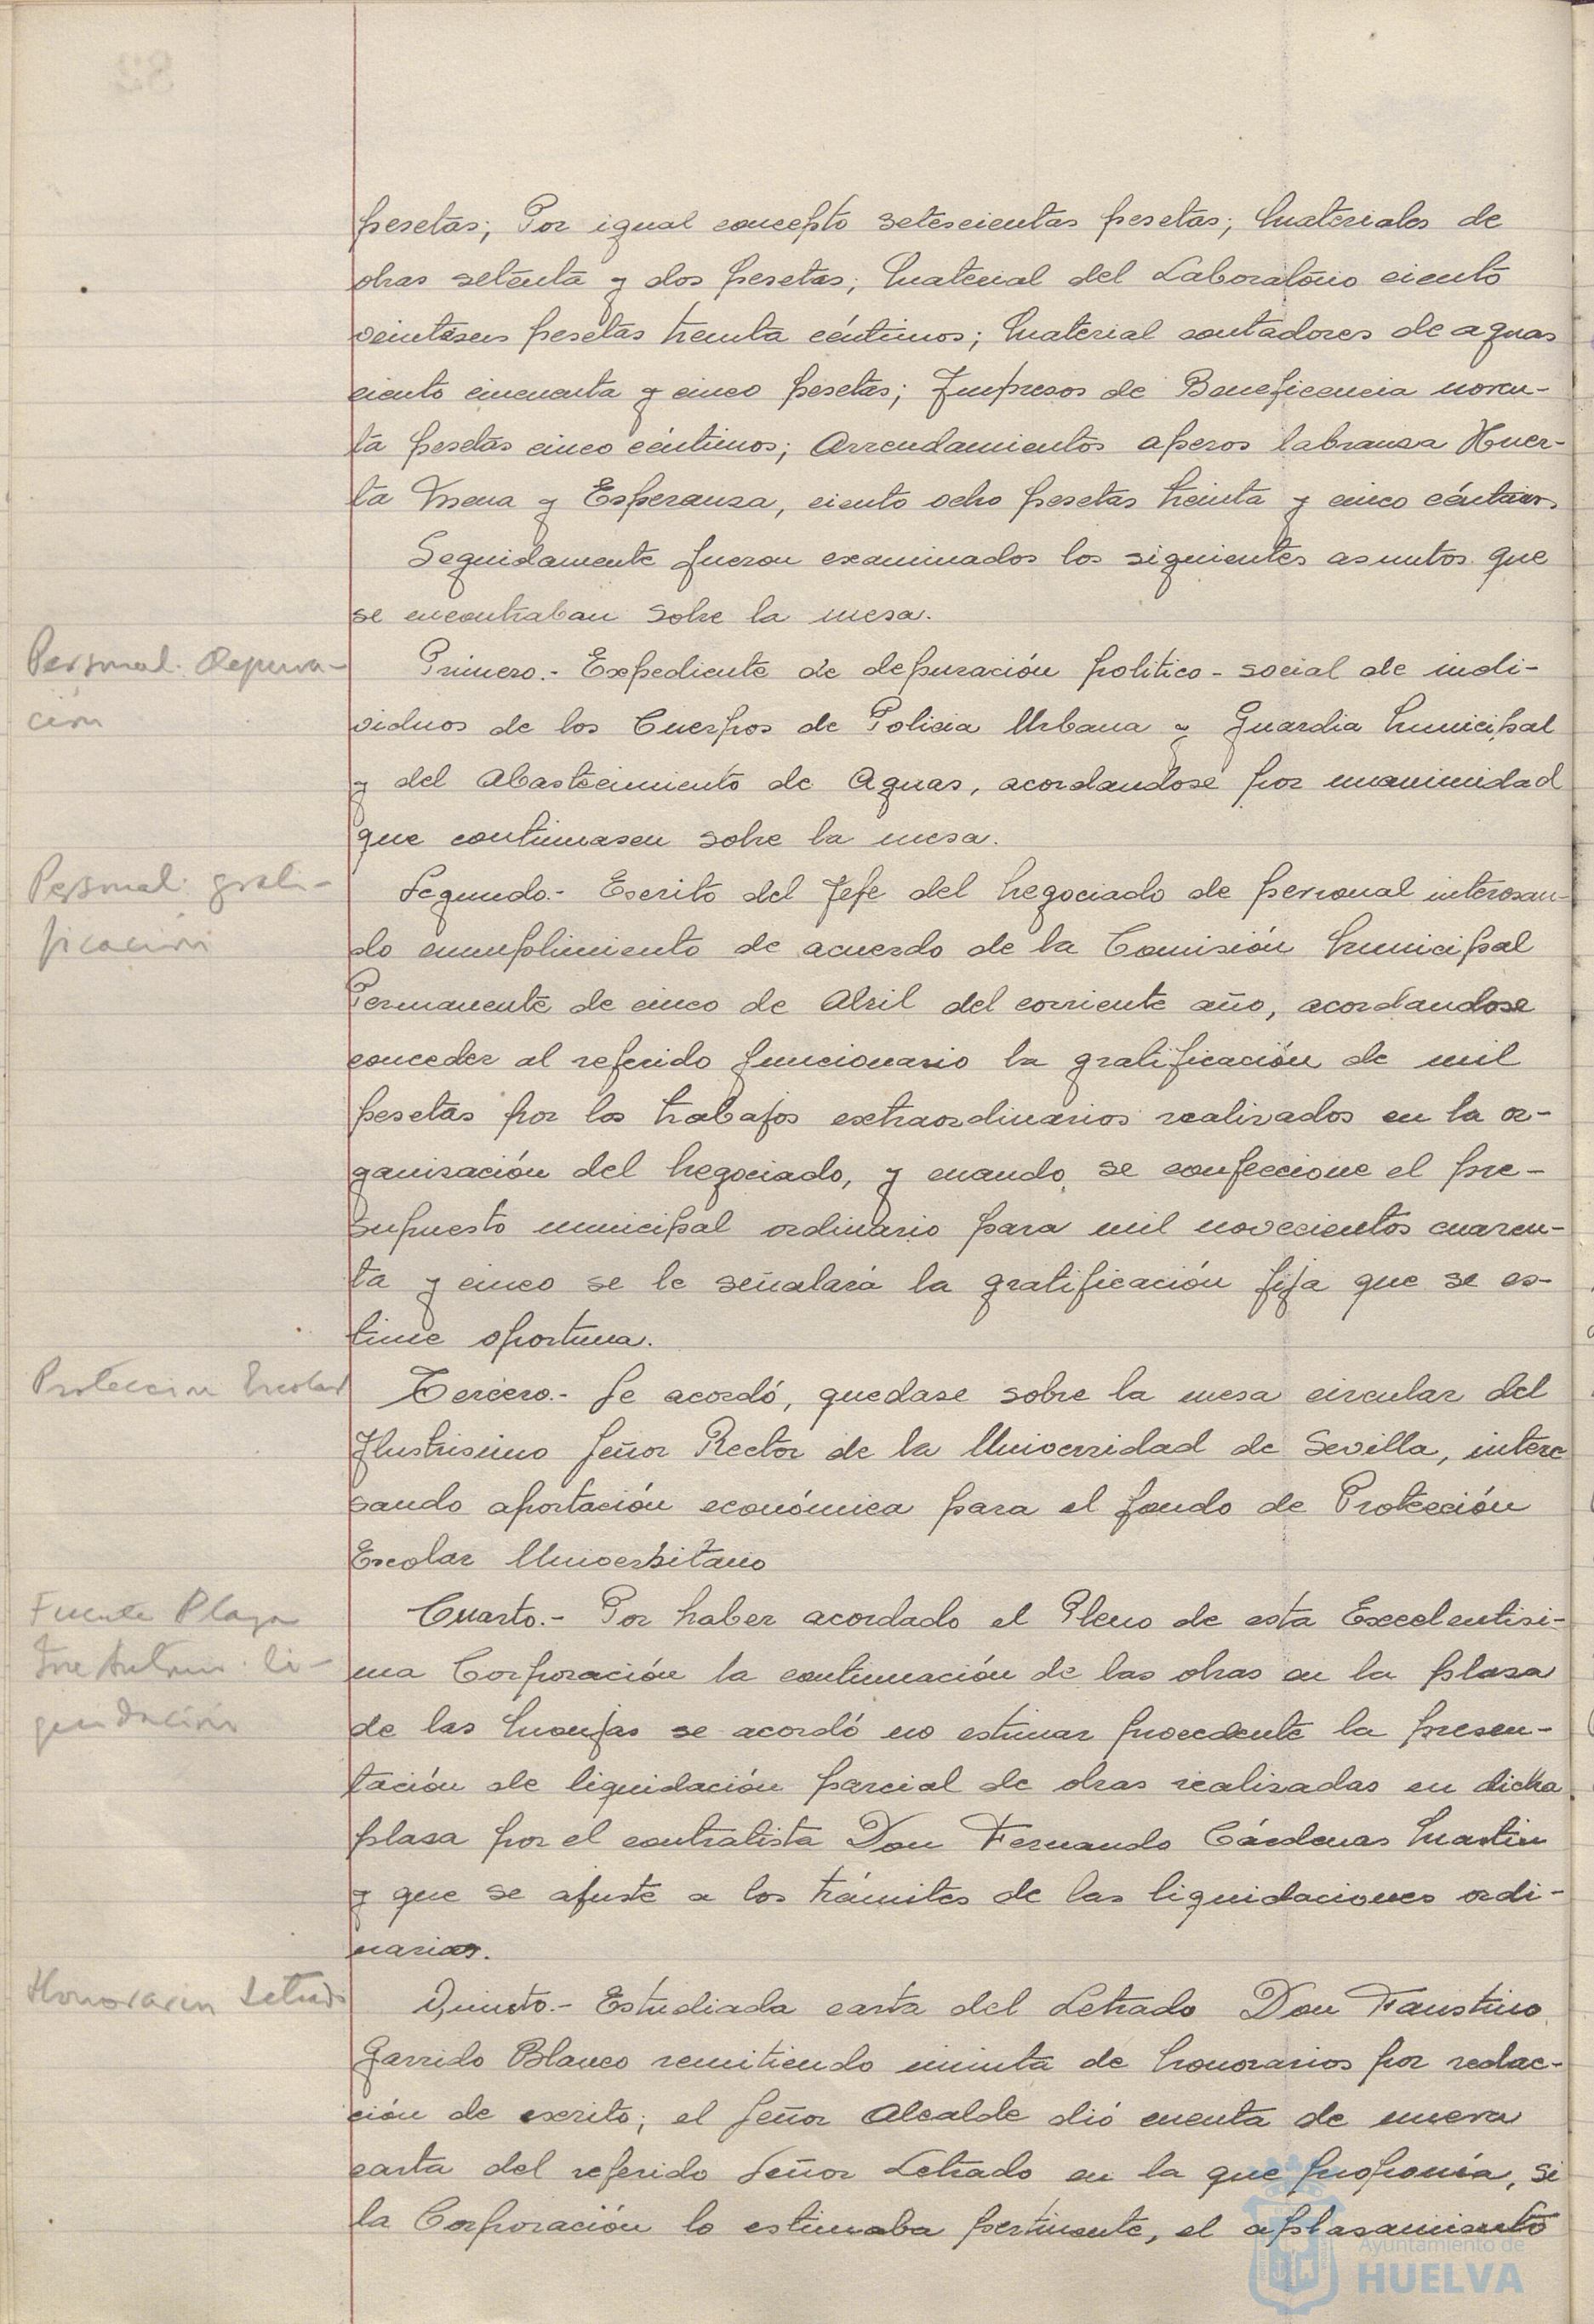 pesetas; Por igual concepto setescientas pesetas; Materiales de
obras setenta y dos pesetas; Material del Laboratorio ciento
veintiseis pesetas treinta céntimos; Material contadores de aguas
ciento cincuenta y cinco pesetas; Impresos de Beneficencia noven-
ta pesetas cinco céntimos; Arrendamientos aperos labranza Huer-
ta Mena y Esperanza, ciento ocho pesetas treinta y cinco céntimos
Seguidamente fueron examinados los siguientes asuntos que
se encontraban sobre la mesa.
Personal. Depura-
ción
Primero.- Expediente de depuración politico-social de indi-
viduos de los Cuerpos de Policia Urbana y Guardia Municipal
y del Abastecimiento de Aguas, acordandose por unanimidad
que continuasen sobre la mesa.
Personal. grati-
ficación
Segundo.- Escrito del Jefe del Negociado de personal interesan-
do cumplimiento de acuerdo de la Comisión Municipal
Permanente de cinco de Abril del corriente año, acordandose
conceder al referido funcionario la gratificación de mil
pesetas por los trabajos extraordinarios realizados en la or-
ganización del Negociado, y cuando se confeccione el pre-
supuesto municipal ordinario para mil novecientos cuaren-
ta y cinco se le señalará la gratificación fija que se es-
time oportuna.
Protección Escolar
Tercero.- Se acordó, quedase sobre la mesa circular del
Ilustrisimo Señor Rector de la Universidad de Sevilla, intere
sando aportación económica para el fondo de Protección
Escolar Universitario
Fuente Plaza
José Antonio. li-
quidación
Cuarto.- Por haber acordado el Pleno de esta Excelentisi-
ma Corporación la continuación de las obras en la plaza
de las Monjas se acordó no estimar procedente la presen-
tación de liquidación parcial de obras realizadas en dicha
plaza por el contratista Don Fernando Cárdenas Martin
y que se ajuste a los trámites de las liquidaciones ordi-
narias.
Honorarios Letrado
Quinto.- Estudiada carta del Letrado Don Faustino
Garrido Blanco remitiendo minuta de honorarios por redac-
ción de escrito; el Señor Alcalde dió cuenta de nueva
carta del referido Señor Letrado en la que proponía, si
la Corporación lo estimaba pertinente, el aplazamiento
Ayuntamiento de
HUELVA